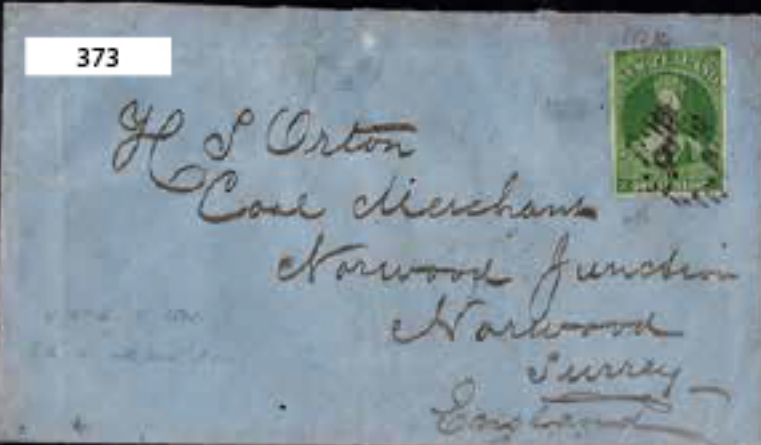 373
NEW ZEALAND
H S Orton
Coal Merchant
Norwood Junction
Norwood
Surrey
England